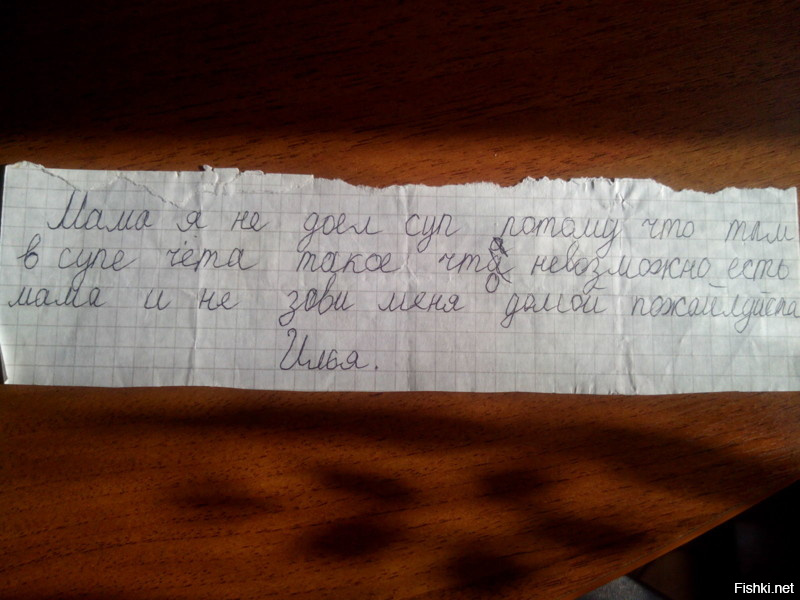 Мама я не доел суп потому что там
в супе чёта такое что невозможно есть
мама и не зови меня домой пожайлуйста
Илья.
Fishki.net